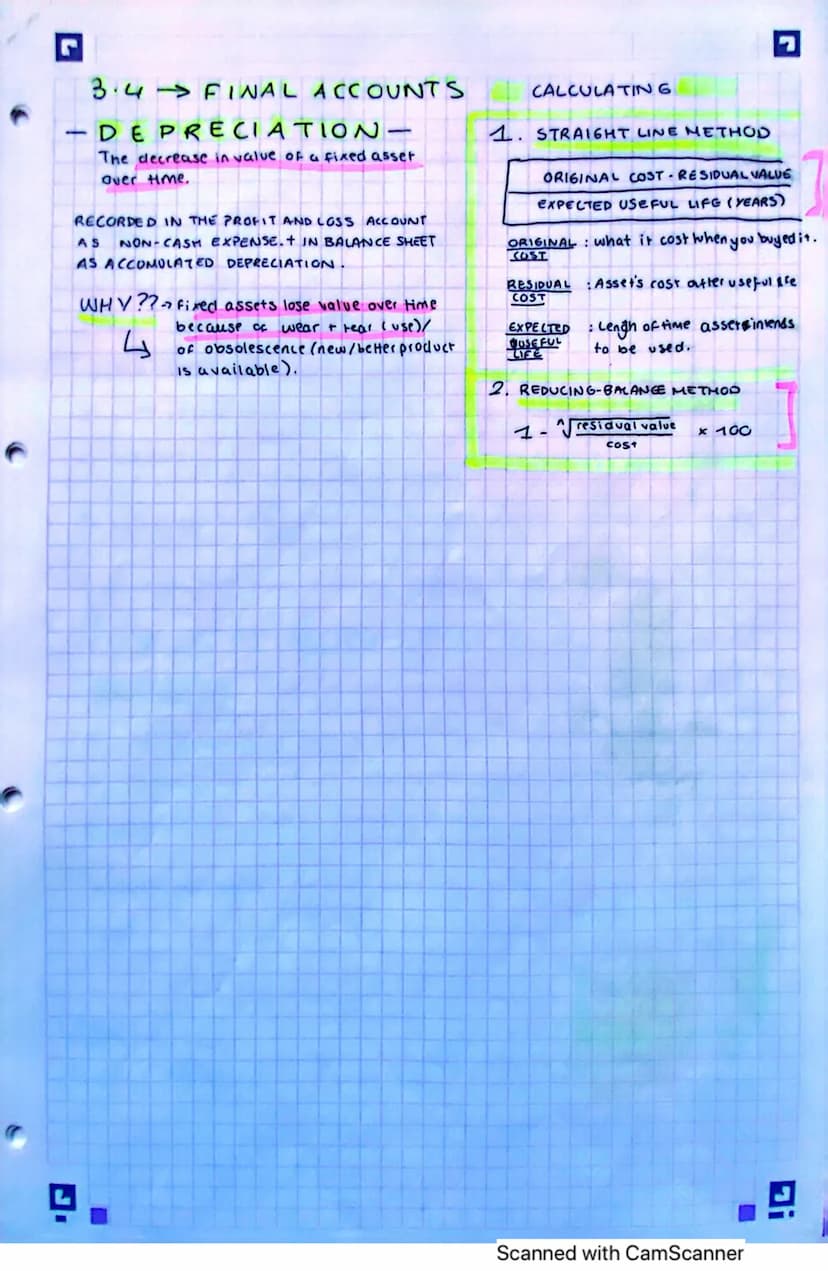 3.4 → FINAL ACCOUNTS
- DEPRECIATION -
The decrease in value of a fixed asset
over time.
RECORDED IN THE PROFIT AND LOSS ACCOUNT
AS NON-CASH EXPENSE. + IN BALANCE SHEET
AS ACCOMULATED DEPRECIATION.
WHY?? → fixed assets lose value over time
because of wear + tear (use)/
of obsolescence (new/better product
is available).
CALCULATING
1. STRAIGHT LINE METHOD
ORIGINAL COST - RESIDUAL VALUE
EXPECTED USEFUL LIFE (YEARS)
ORIGINAL COST : what it cost when you buyed it.
RESIDUAL COST : Asset's cost after useful life
EXPECTED USEFUL LIFE : Lengh of time assets intends
to be used.
2. REDUCING-BALANCE METHOD
1 - ^√residual value x 100
cost
Scanned with CamScanner